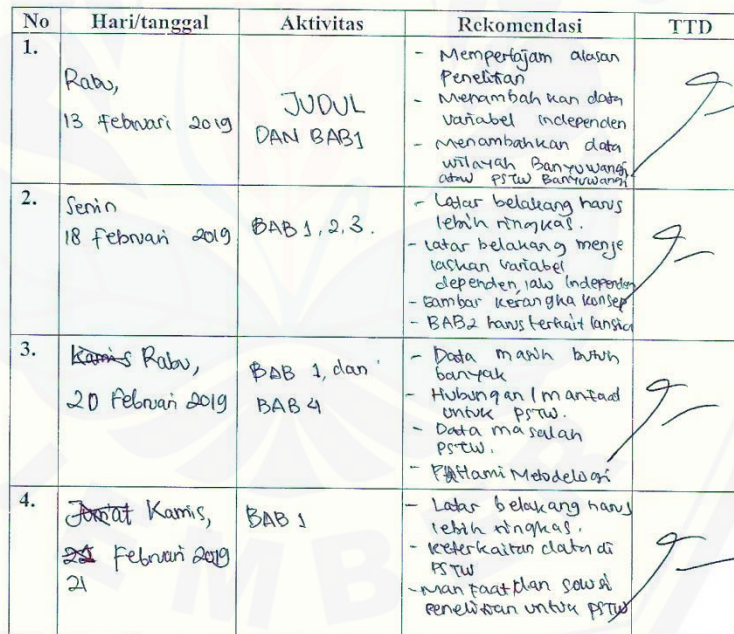 No Hari/tanggal Aktivitas Rekomendasi TTD
1.
Rabu,
13 Februari 2019
JUDUL
DAN BAB1
- Mempertajam alasan
Penelitian
- Menambahkan data
variabel independen
- Menambahkan data
wilayah Banyuwangi
atau PSTW Banyuwangi
2.
Senin
18 Februari 2019
BAB 1, 2, 3.
- Latar belakang harus
lebih ringkas.
- Latar belakang menje
laskan variabel
dependen, lalu independen
- Gambar kerangka konsep
- BAB2 harus terkait lansia
3.
Kamis Rabu,
20 Februari 2019
BAB 1, dan
BAB 4
- Data masih butuh
banyak
- Hubungan / manfaat
untuk PSTW.
- Data masalah
PSTW.
- PAHami Metodelogi
4.
Jumat Kamis,
22 Februari 2019
21
BAB 1
- Latar belakang harus
lebih ringkas.
- Keterkaitan data di
PSTW
- Manfaat dan solusi
penelitian untuk PSTW